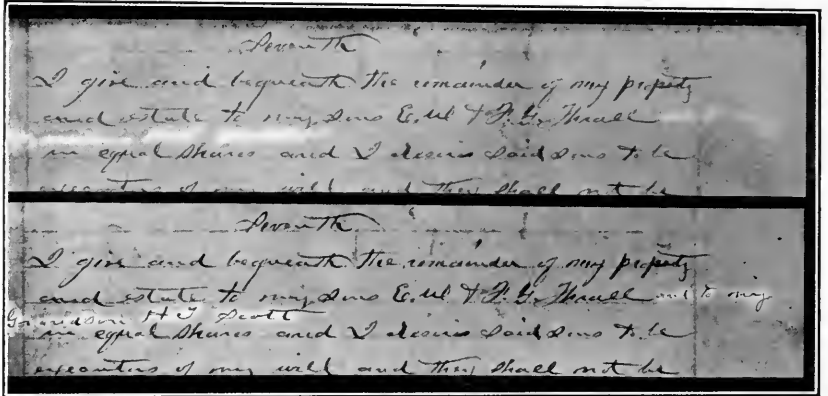 Seventh
I give and bequeath the remainder of my property
and estate to my sons E. M & F. G. Thrall
in equal shares and I desire said sons to be
executors of my will and they shall not be
Seventh
I give and bequeath the remainder of my property
and estate to my sons E. M & F. G. Thrall and to my
Grandson H T Scott
in equal shares and I desire said sons to be
executors of my will and they shall not be